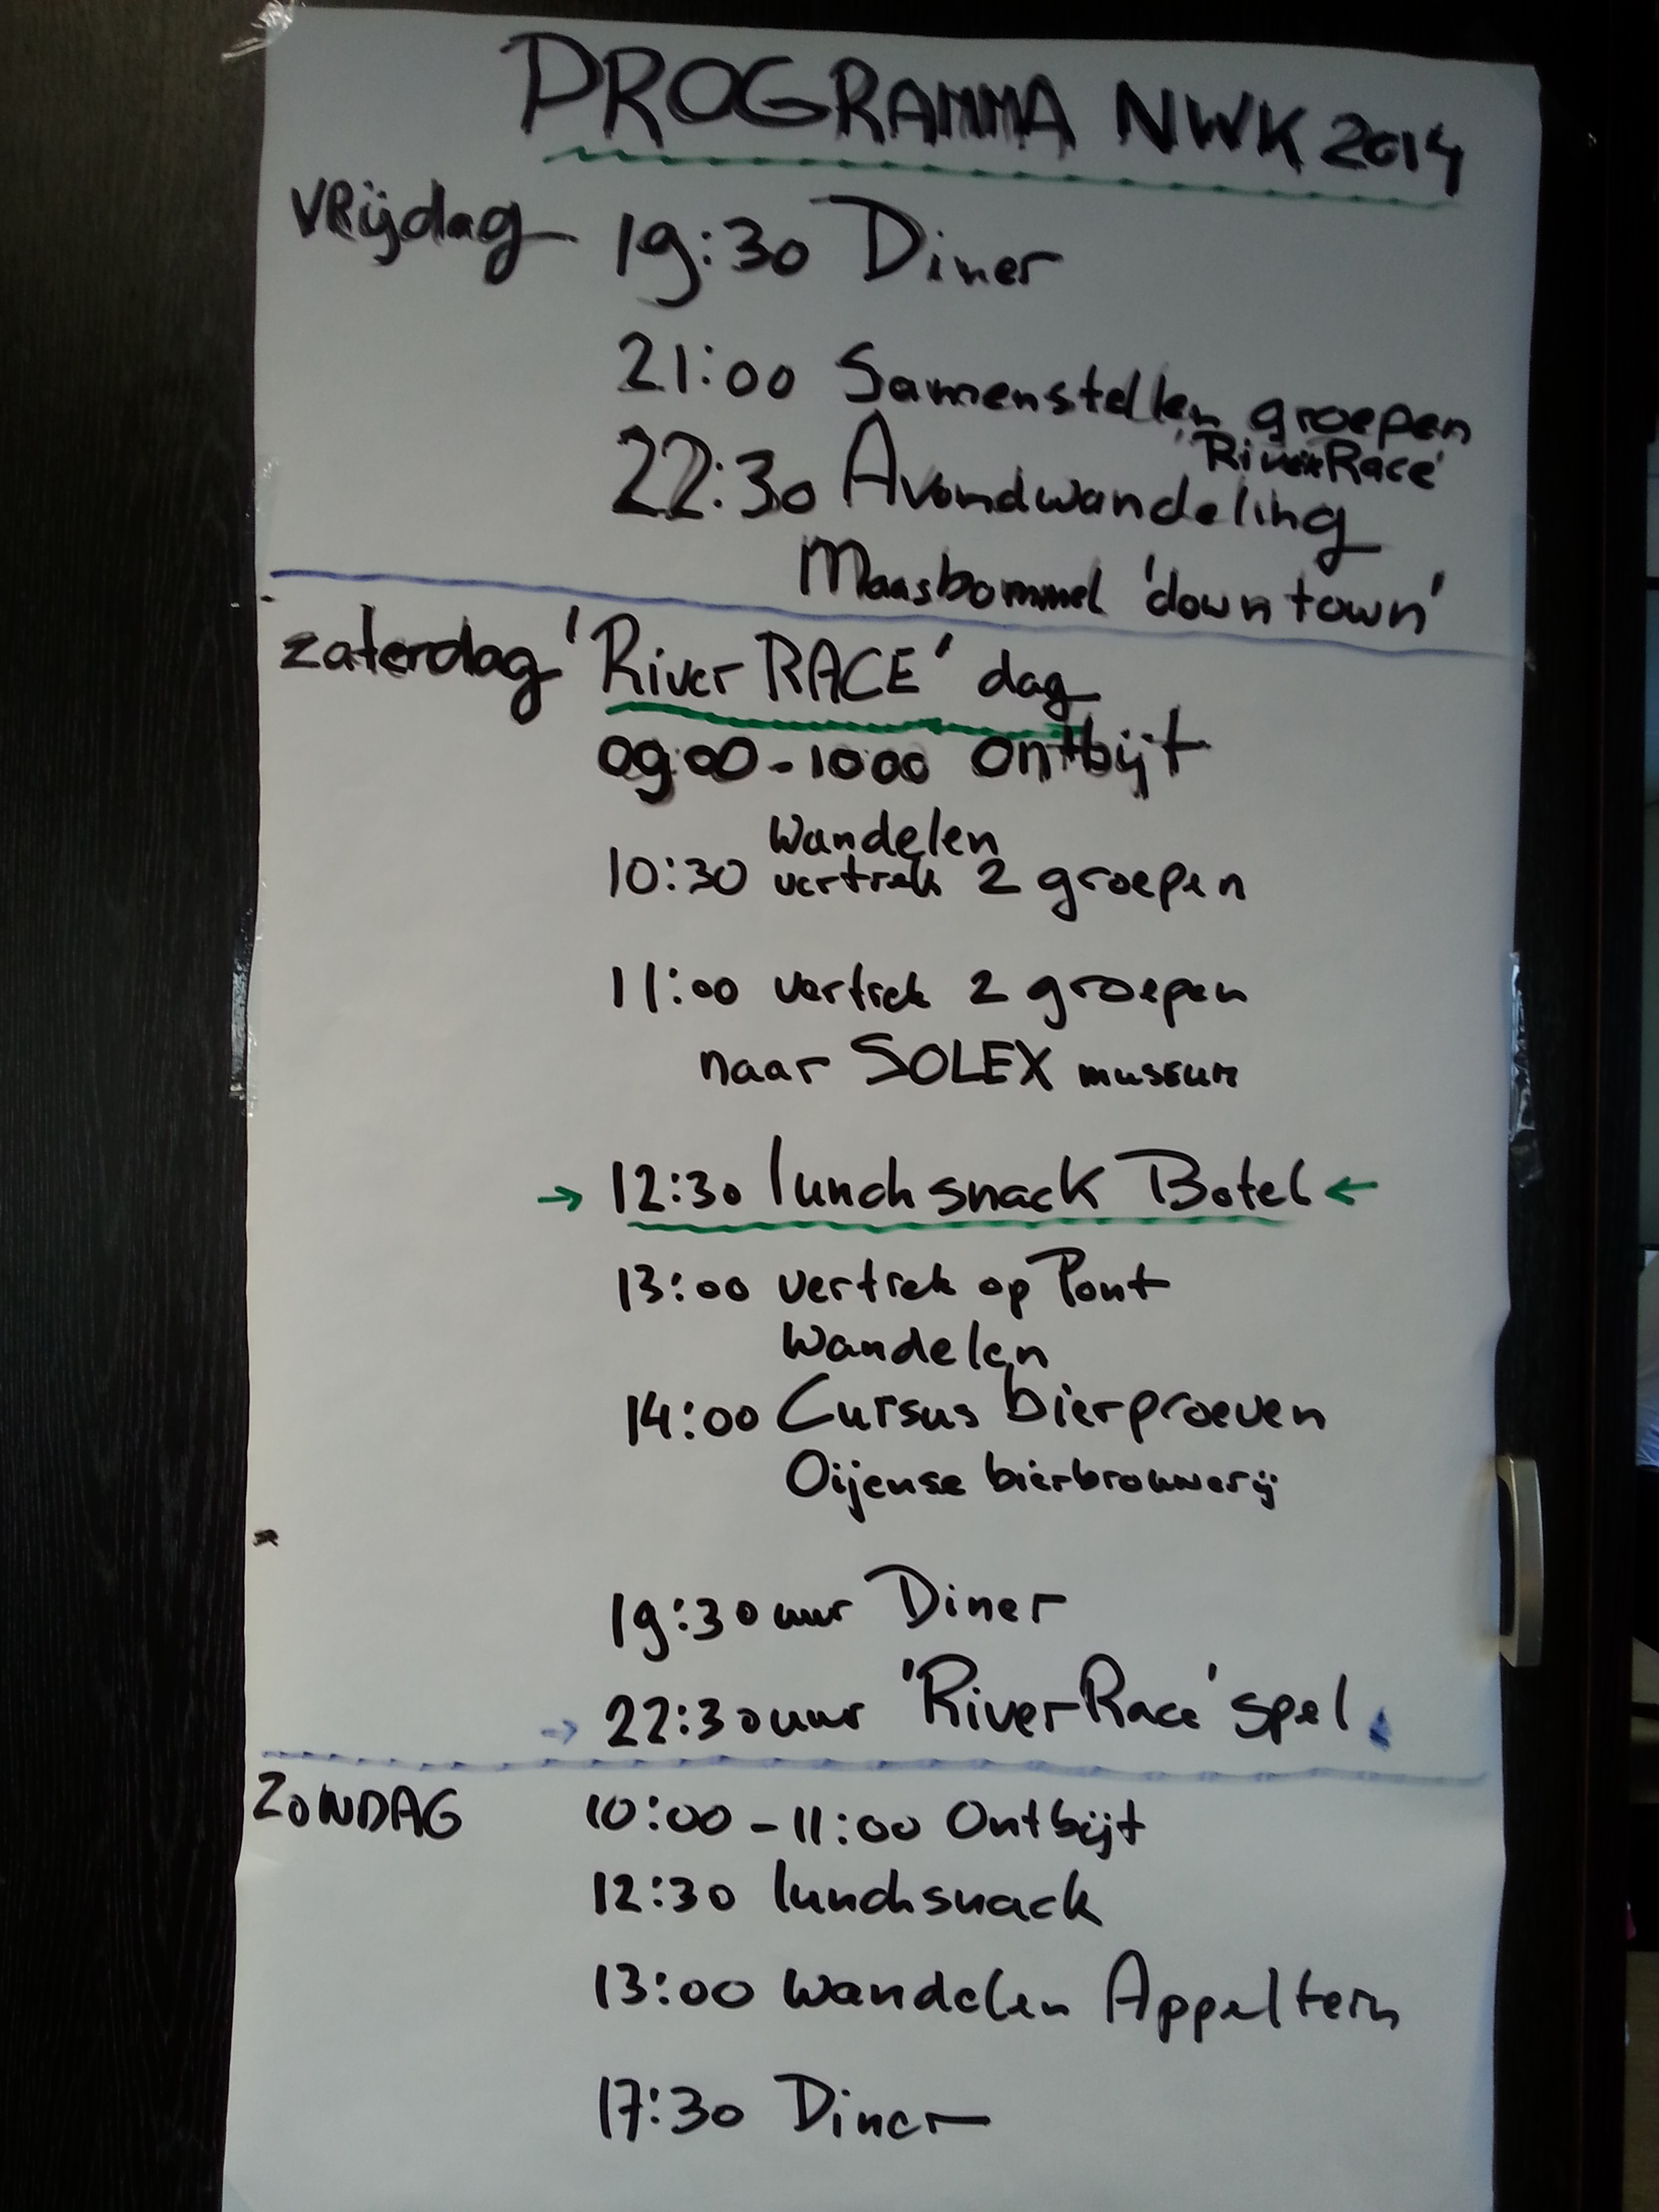 PROGRAMMA NWK 2014
Vrijdag 19:30 Diner
21:00 Samenstellen groepen
'RiverRace'
22:30 Avondwandeling
Maasbommel 'downtown'
zaterdag 'River RACE' dag
09:00 - 10:00 Ontbijt
Wandelen
10:30 vertrek 2 groepen
11:00 vertrek 2 groepen
naar SOLEX museum
→ 12:30 lunchsnack Botel ←
13:00 vertrek op Pont
Wandelen
14:00 Cursus bierproeven
Oijense bierbrouwerij
19:30 uur Diner
→ 22:30 uur 'RiverRace' spel
ZONDAG 10:00 - 11:00 Ontbijt
12:30 lunchsnack
13:00 wandelen Appeltern
17:30 Diner